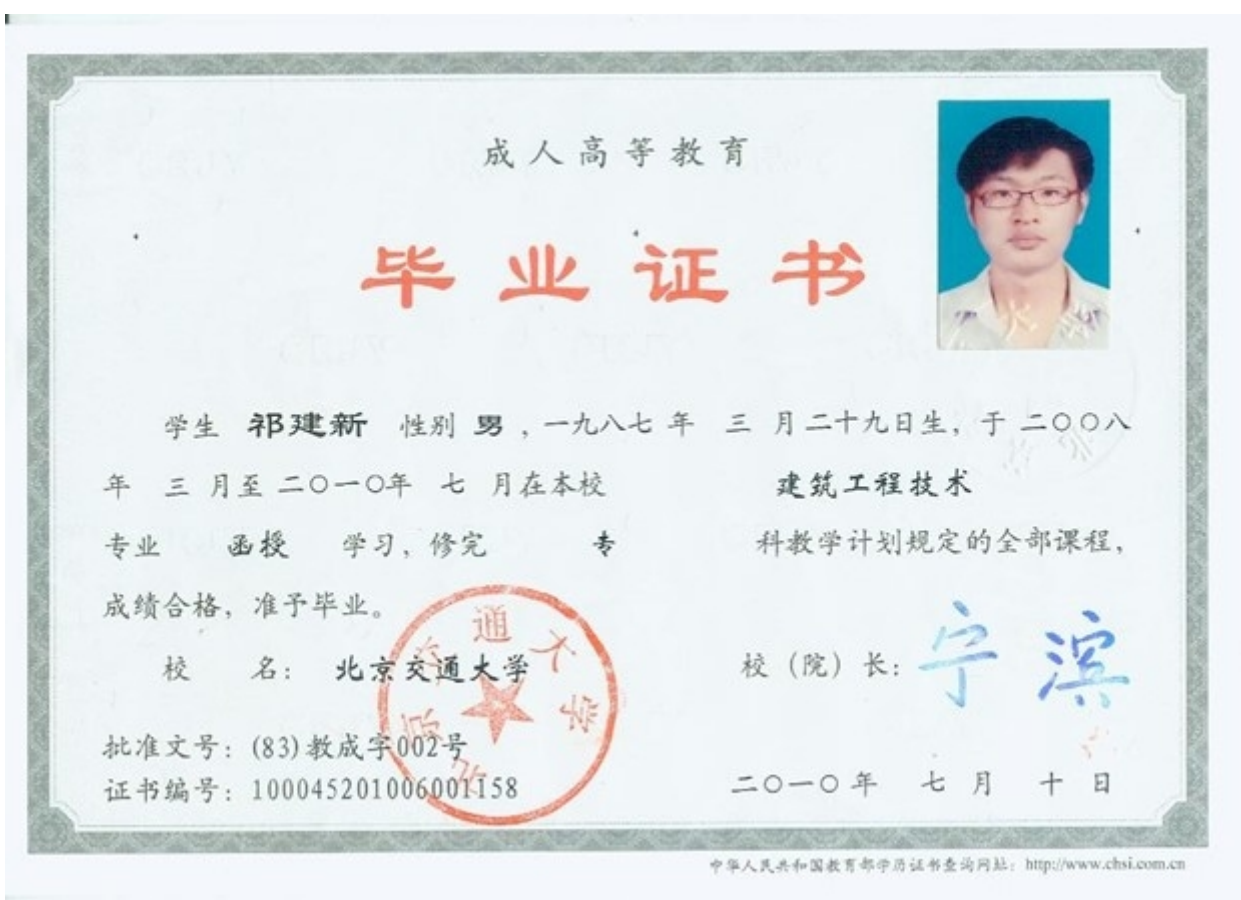 成人高等教育
毕业证书
学生 祁建新 性别 男，一九八七 年 三 月二十九日生，于 二〇〇八
年 三 月至 二〇一〇年 七 月在本校 建筑工程技术
专业 函授 学习，修完 专 科教学计划规定的全部课程，
成绩合格，准予毕业。
校 名： 北京交通大学 校（院）长：宁滨
北京交通大学
批准文号：(83)教成字002号
证书编号：100045201006001158 二〇一〇年 七月 十日
中华人民共和国教育部学历证书查询网址：http://www.chsi.com.cn